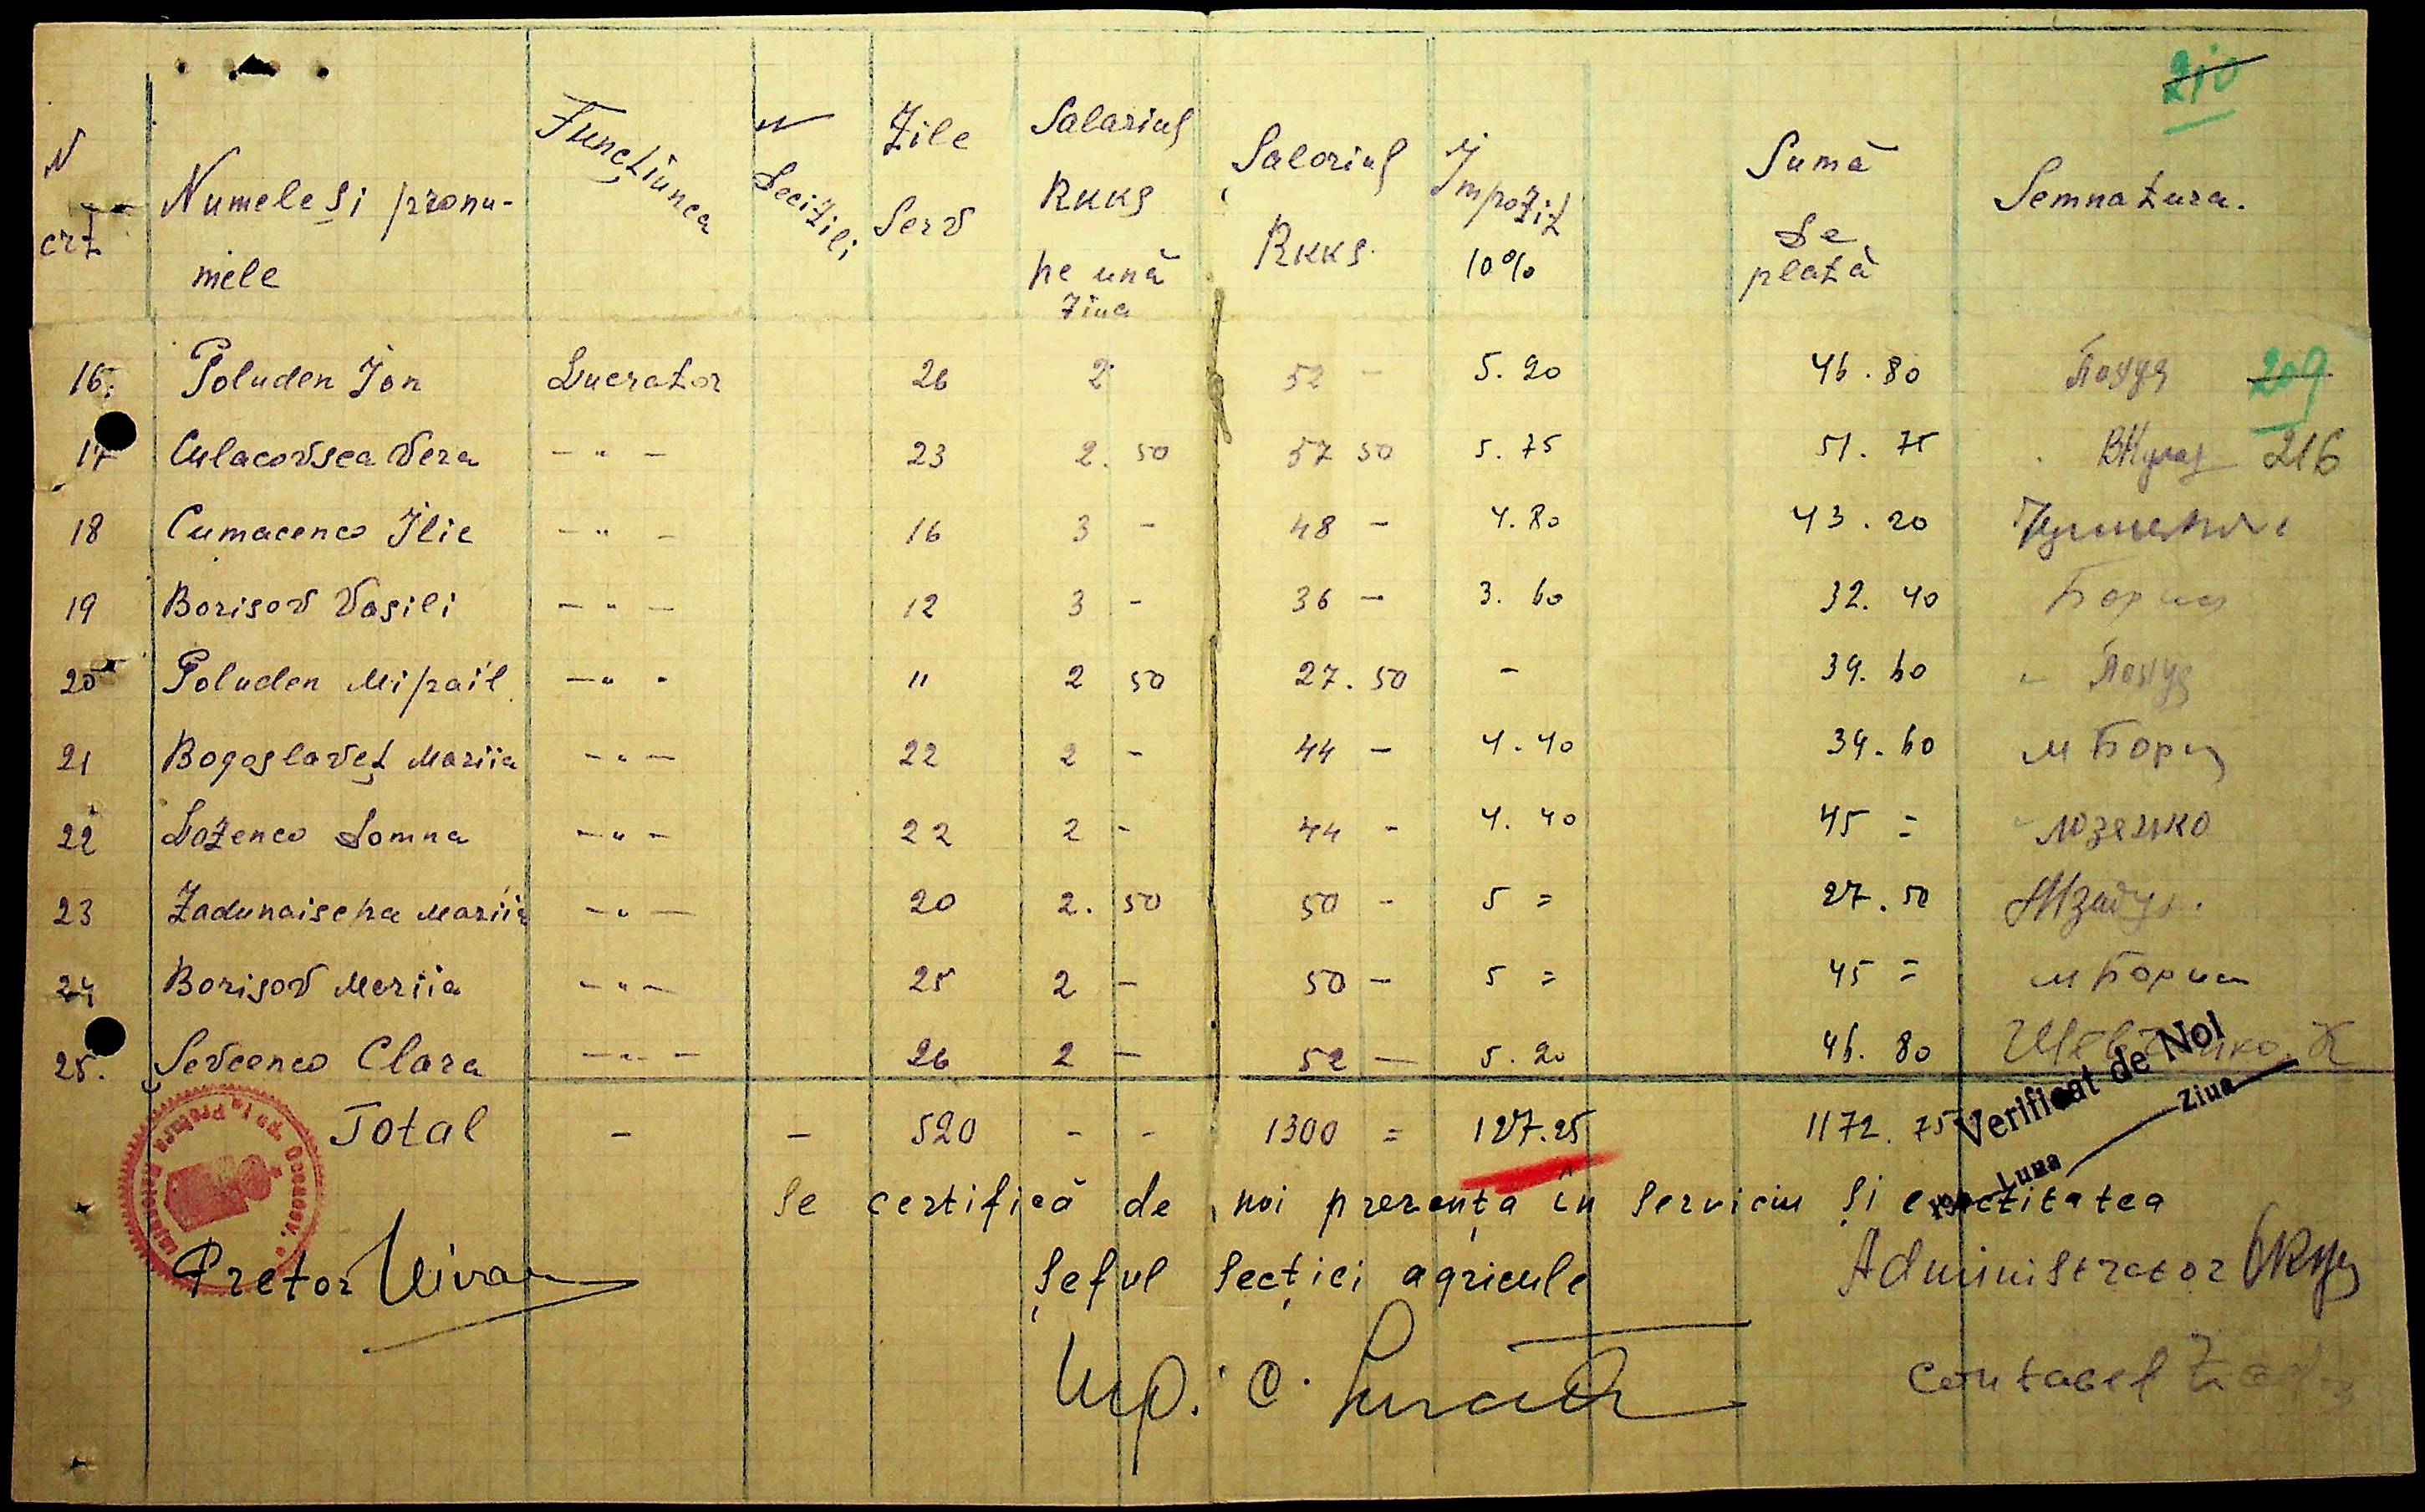 210
N crt Numele Și pronumele Funcțiunea N Decizili Zile Serv Salariul RKKS pe ună Ziua Salariul RKKS. Impozit 10% Sumă De plată Semnatura.
16. Poluden Ion Lucrator 26 2 52 - 5.20 46.80 Полуд 209
17 Culacovsca Vera - " - 23 2.50 57 50 5.75 51.75 ВКулаг 216
18 Cumacenco Ilie - " - 16 3 - 48 - 4.80 43.20
19 Borisov Vasili - " - 12 3 - 36 - 3.60 32.40 Борис
20 Poluden Mihail - " - 11 2 50 27.50 - 39.60 Полуд
21 Bogoslaveț Mariia - " - 22 2 - 44 - 4.40 39.60 М Бори
22 Lozenco Domna - " - 22 2 - 44 - 4.40 45 = Лозенко
23 Zadunaischa Mariia - " - 20 2.50 50 - 5 = 27.50 МЗаду
24 Borisov Meriia - " - 25 2 - 50 - 5 = 45 = М Борис
25. Șevcenco Clara - " - 26 2 - 52 - 5.20 46.80 Шевченко К
Total - - 520 - - 1300 = 127.25 1172.75
Verificat de Noi
Luna Ziua
Se certifică de noi prezența în serviciu și exactitatea
Pretor Șeful Secției agricule Administrator
Insp. C.
Contabel Zad